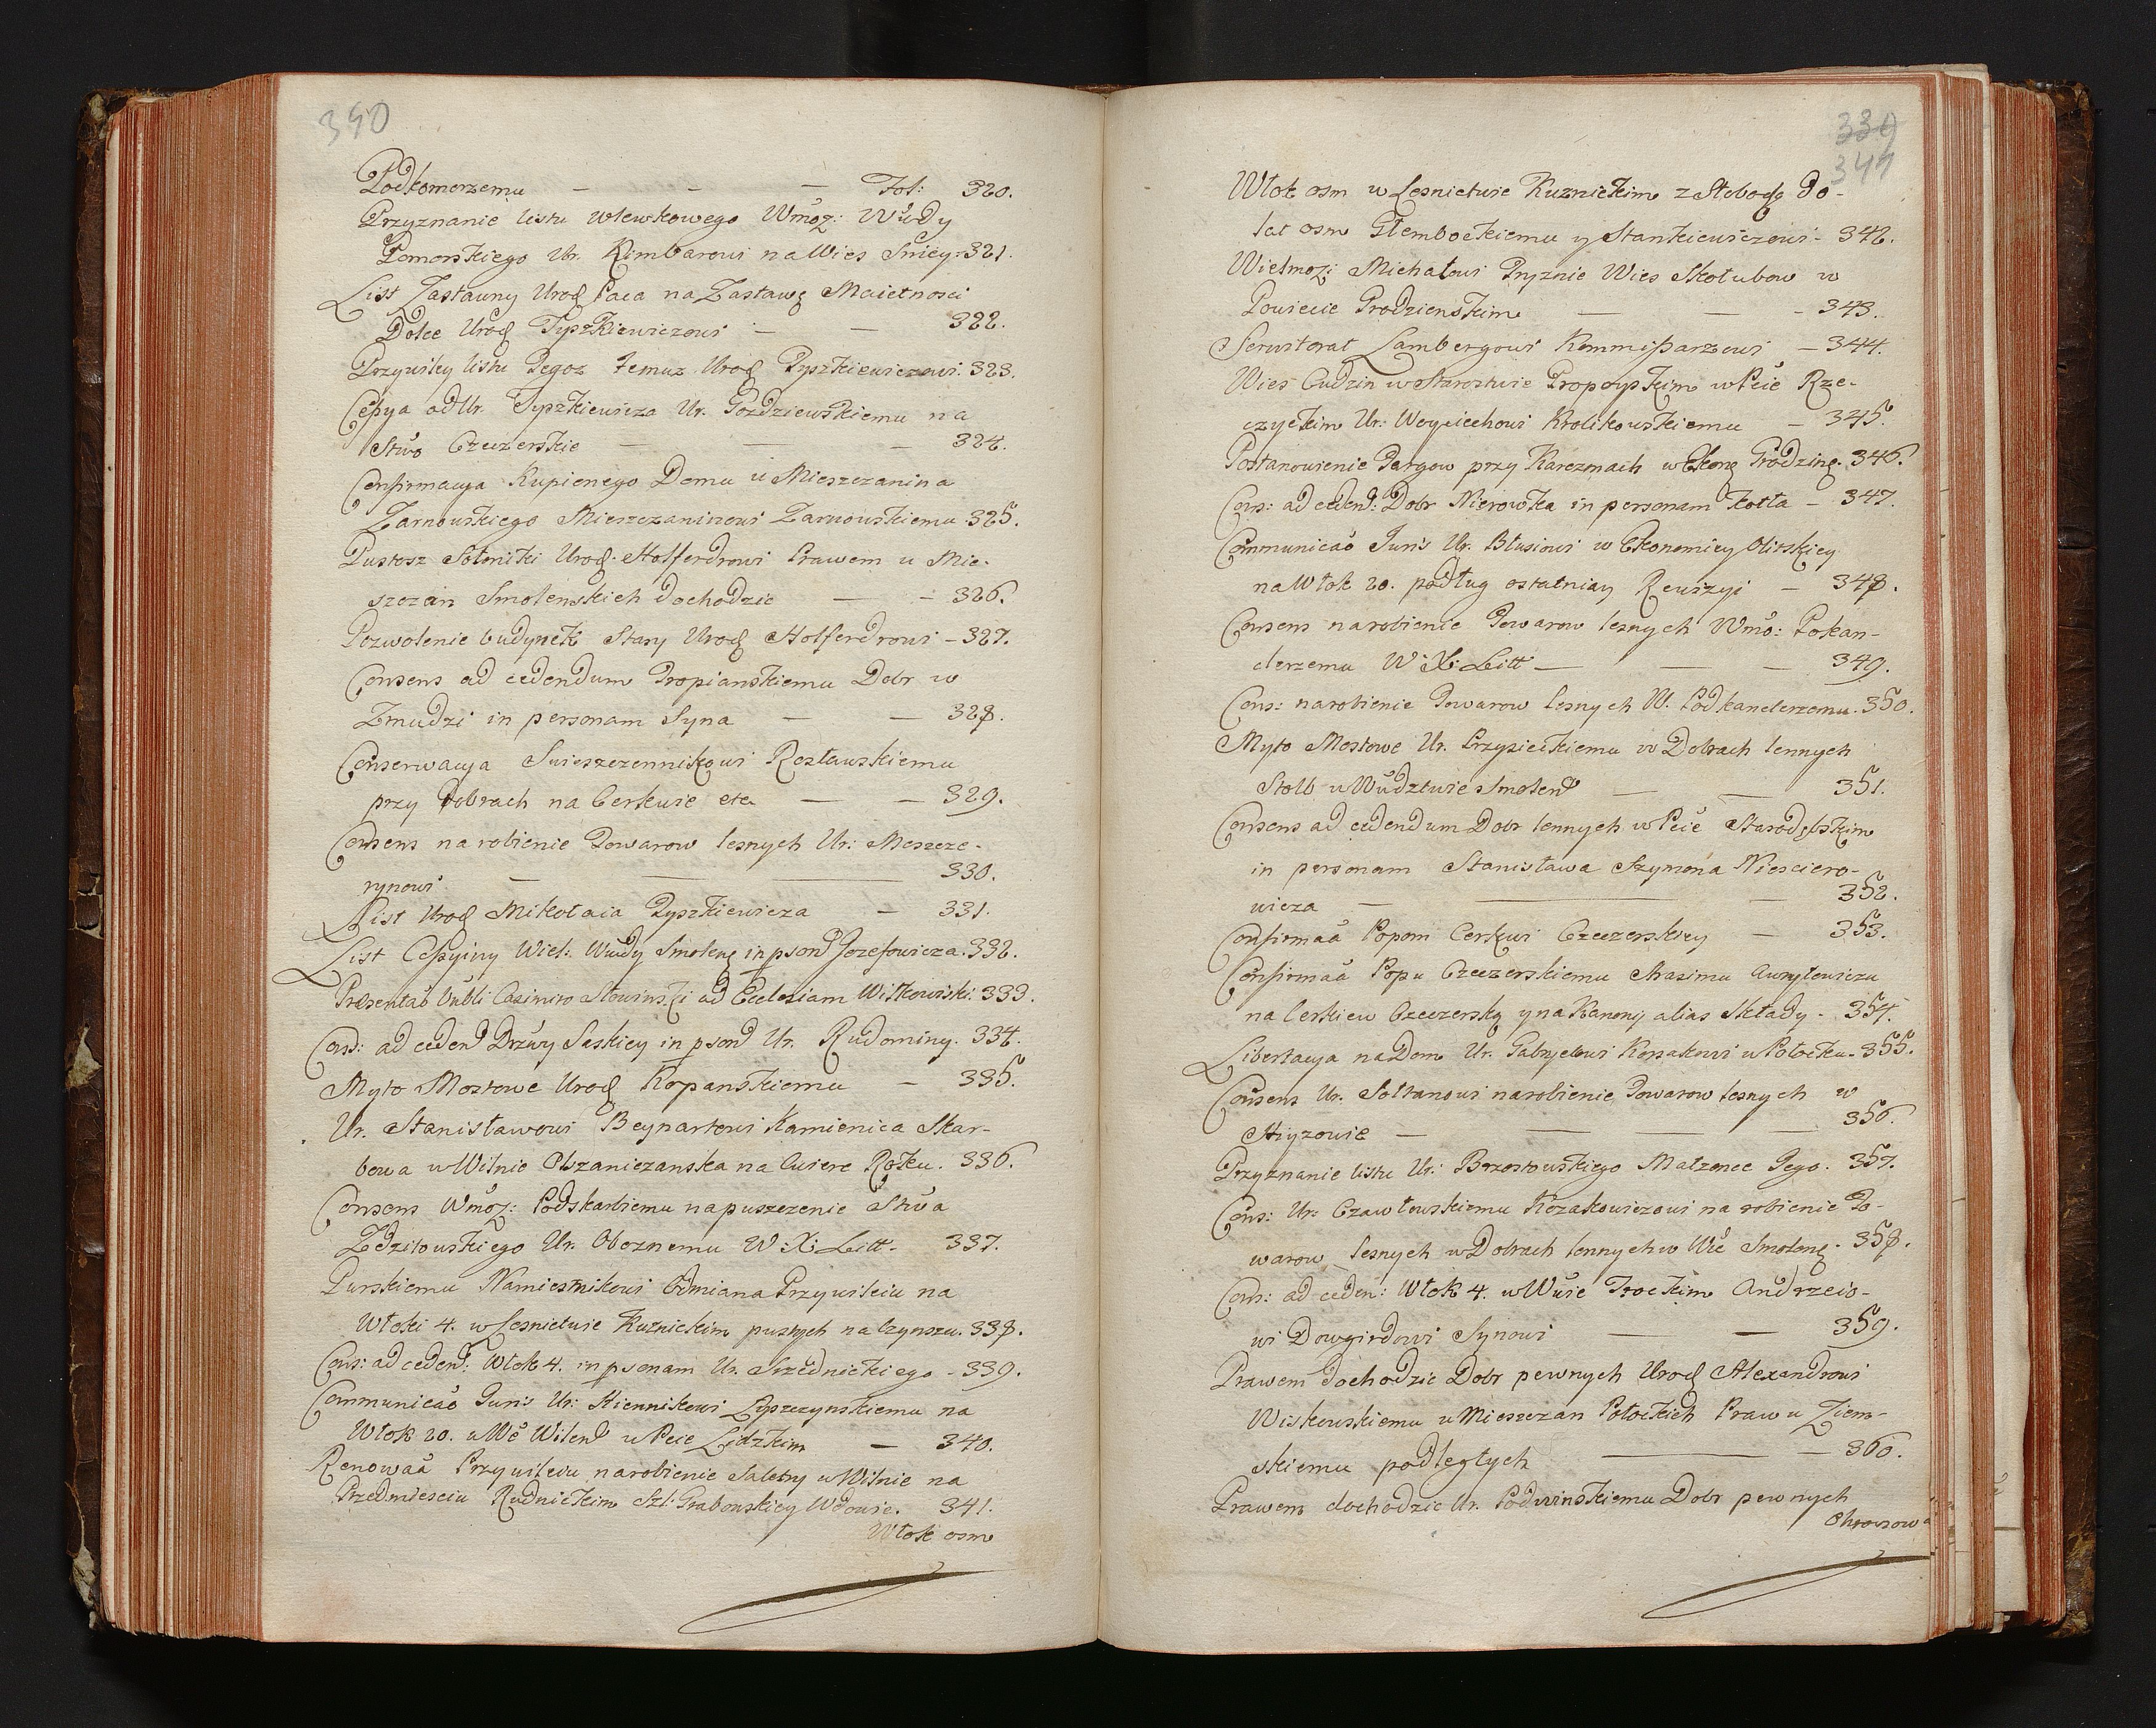 390
Podkomorzemu — — — Fol: 320.
Przyznanie listu wlewkowego Wmoz: Wudy
Pomorskiego Ur. Kimbarowi na Wies Sniey: 321.
List Zastawny Urod Paca na Zastawę Maietnosci
Dolce Urod Tyszkiewiczowi — — 322.
Przywiley listu Tegoz Temuz Urod Tyszkiewiczowi. 323.
Cessya od Ur. Tyszkiewicza Ur. Gozdziewskiemu na
Stwo Czeczerskie — — — 324.
Confirmacya Kupionego Domu u Mieszczanina
Zarnowskiego Mieszczaninowi Zarnowskiemu 325.
Pustosz Sołoniki Urod. Holferdrowi Prawem u Mie-
szczan Smolenskich dochodzic — — 326.
Pozwolenie budynek Stary Urod Holferdrowi — 327.
Consens ad cedendum Propianskiemu Dobr w
Zmudzi in personam Syna — — 328.
Conserwacya Swieszczennikowi Rosławskiemu
przy Dobrach na Cerkwie etc — — 329.
Consens na robienie Towarow lesnych Ur: Meszcze-
rynowi — — — 330.
List Urod Mikołaia Tyszkiewicza — 331.
List Cessyiny Wiel: Wudy Smoleng in psond Jozefowicza. 332.
Præsentao Vubli Casimiro Słowinski ad Ecclesiam Witkowiski. 333.
Cons: ad cedend Drzwy Saskiey in psond Ur. Rudominy. 334.
Myto Mostowe Urod Kopanskiemu — 335.
Ur. Stanisławowi Beynartowi Kamienica Skar-
bowa w Wilnie Olszaniczanska na Cwierc Roku. 336.
Consens Wmoz: Podskarbiemu na puszczenie Stwa
Zdzitowskiego Ur. Oboznemu W: X: Litt. 337.
Purskiemu Namiestnikowi Odmiana Przywileiu na
Włoki 4. w Lesnictwie Kuznickim pustych na Czynszu. 338.
Cons: ad cedend: Włok 4. in psonam Ur. Srzednickiego - 339.
Communicao Juris Ur: Kiennikowi Łyszczynskiemu na
Włok 20. w We Wilend w Pcie Lidzkim — 340.
Renowaa Przywileiu na robienie Saletry w Wilnie na
Przedmiesciu Rudnickim Szl: Grabowskiey Wdowie. 341.
Włok osm
339
341
Włok osm w Lesnictwie Kuznickim z Słobodą do-
lat osm Głembockiemu y Stankiewiczowi - 342.
Wielmoz: Michałowi Pryznie Wies Skołubow w
Powiecie Grodzienskim — — - 343.
Serwitorat Lambergowi Kommissarzowi — 344.
Wies Cudzin w Starostwie Propoyskim w Pcie Rze-
czyckim Ur: Woyciechowi Krolikowskiemu — 345.
Postanowienie Targow przy Karczmach w Ekong Grodzing. 346.
Cons: ad cedend: Dobr Nierowka in personam Kotła — 347.
Communicao Juris Ur. Błusiowi w Ekonomiey Olitskiey
na Włok 20. podług ostatniay Rewizyi — 348.
Consens na robienie Towarow lesnych Wmo: Pokan-
clerzemu W: X: Litt — — — 349.
Cons: na robienie Towarow lesnych W. Podkanclerzemu. 350.
Myto Mostowe Ur. Przysieckiemu w Dobrach lennych
Stolb w Wudztwie Smolend — — 351.
Consens ad cedendum Dobr lennych w Pcie Starodębskim
in personam Stanisława Szymona Niesciero-
wicza — — — 352.
Confirmaa Popom Cerkwi Czeczerskiey — 353.
Confirmaa Popu Czeczerskiemu Arasimu Awryłowiczu
na Cerkiew Czeczerską y na Kanony alias Składy - 354.
Libertacya na Dom Ur. Gabryelowi Korsakowi w Połocku. 355.
Consens Ur. Sołtanowi na robienie Towarow lesnych w
Hiyzowie — — — 356.
Przyznanie listu Ur: Brzostowskiego Małzonce Jego. 357.
Cons: Ur: Czawłowskiemu Kozakowiczowi na robienie To-
warow lesnych w Dobrach lennych w We Smoleng - 358.
Cons: ad ceden: Włok 4. w Wuie Trockim Andrzeio-
wi Dowgirdowi Synowi — — 359.
Prawem dochodzic Dobr pewnych Urod Alexandrowi
Wiskowskiemu u Mieszczan Połockich Prawu Ziem-
skiemu podległych — — 360.
Prawem dochodzic Ur. Podwinskiemu Dobr pewnych